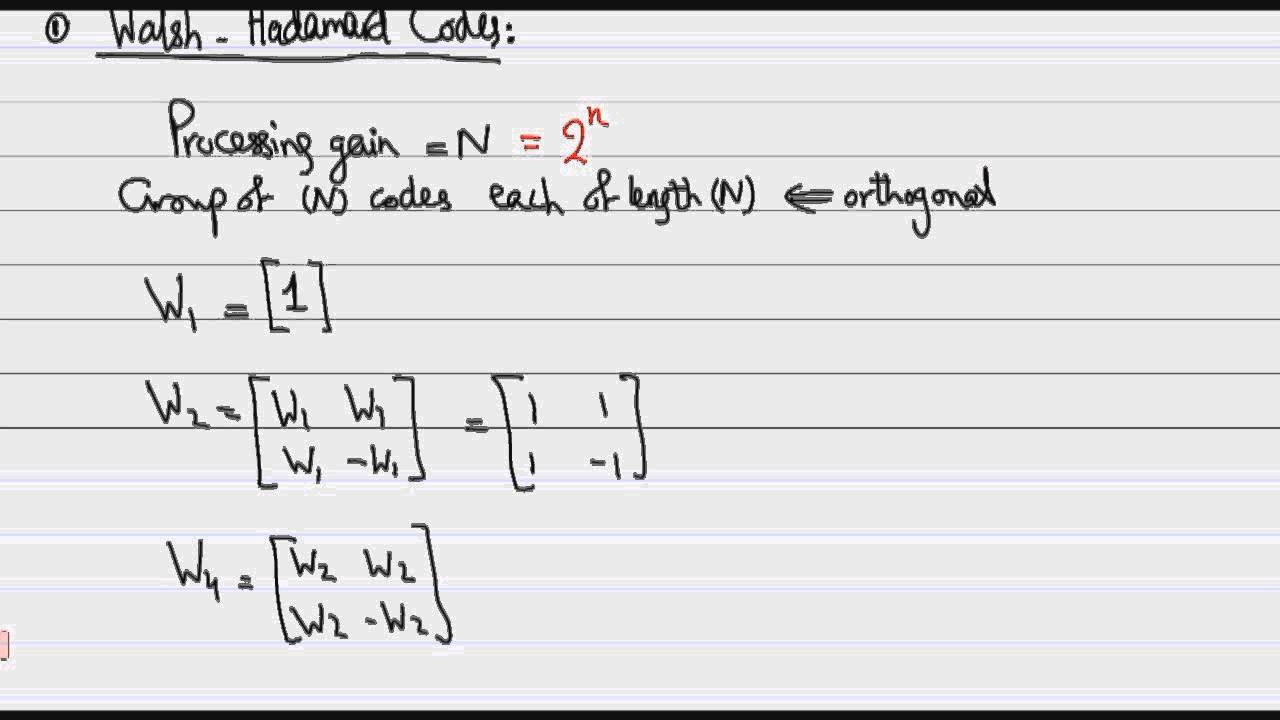 ① Walsh - Hadamard Codes:
Processing gain = N = 2^n
Group of (N) codes each of length (N) ⇐ orthogonal
W₁ = [1]
W₂ = [W₁ W₁
W₁ -W₁] = [1 1
1 -1]
W₄ = [W₂ W₂
W₂ -W₂]